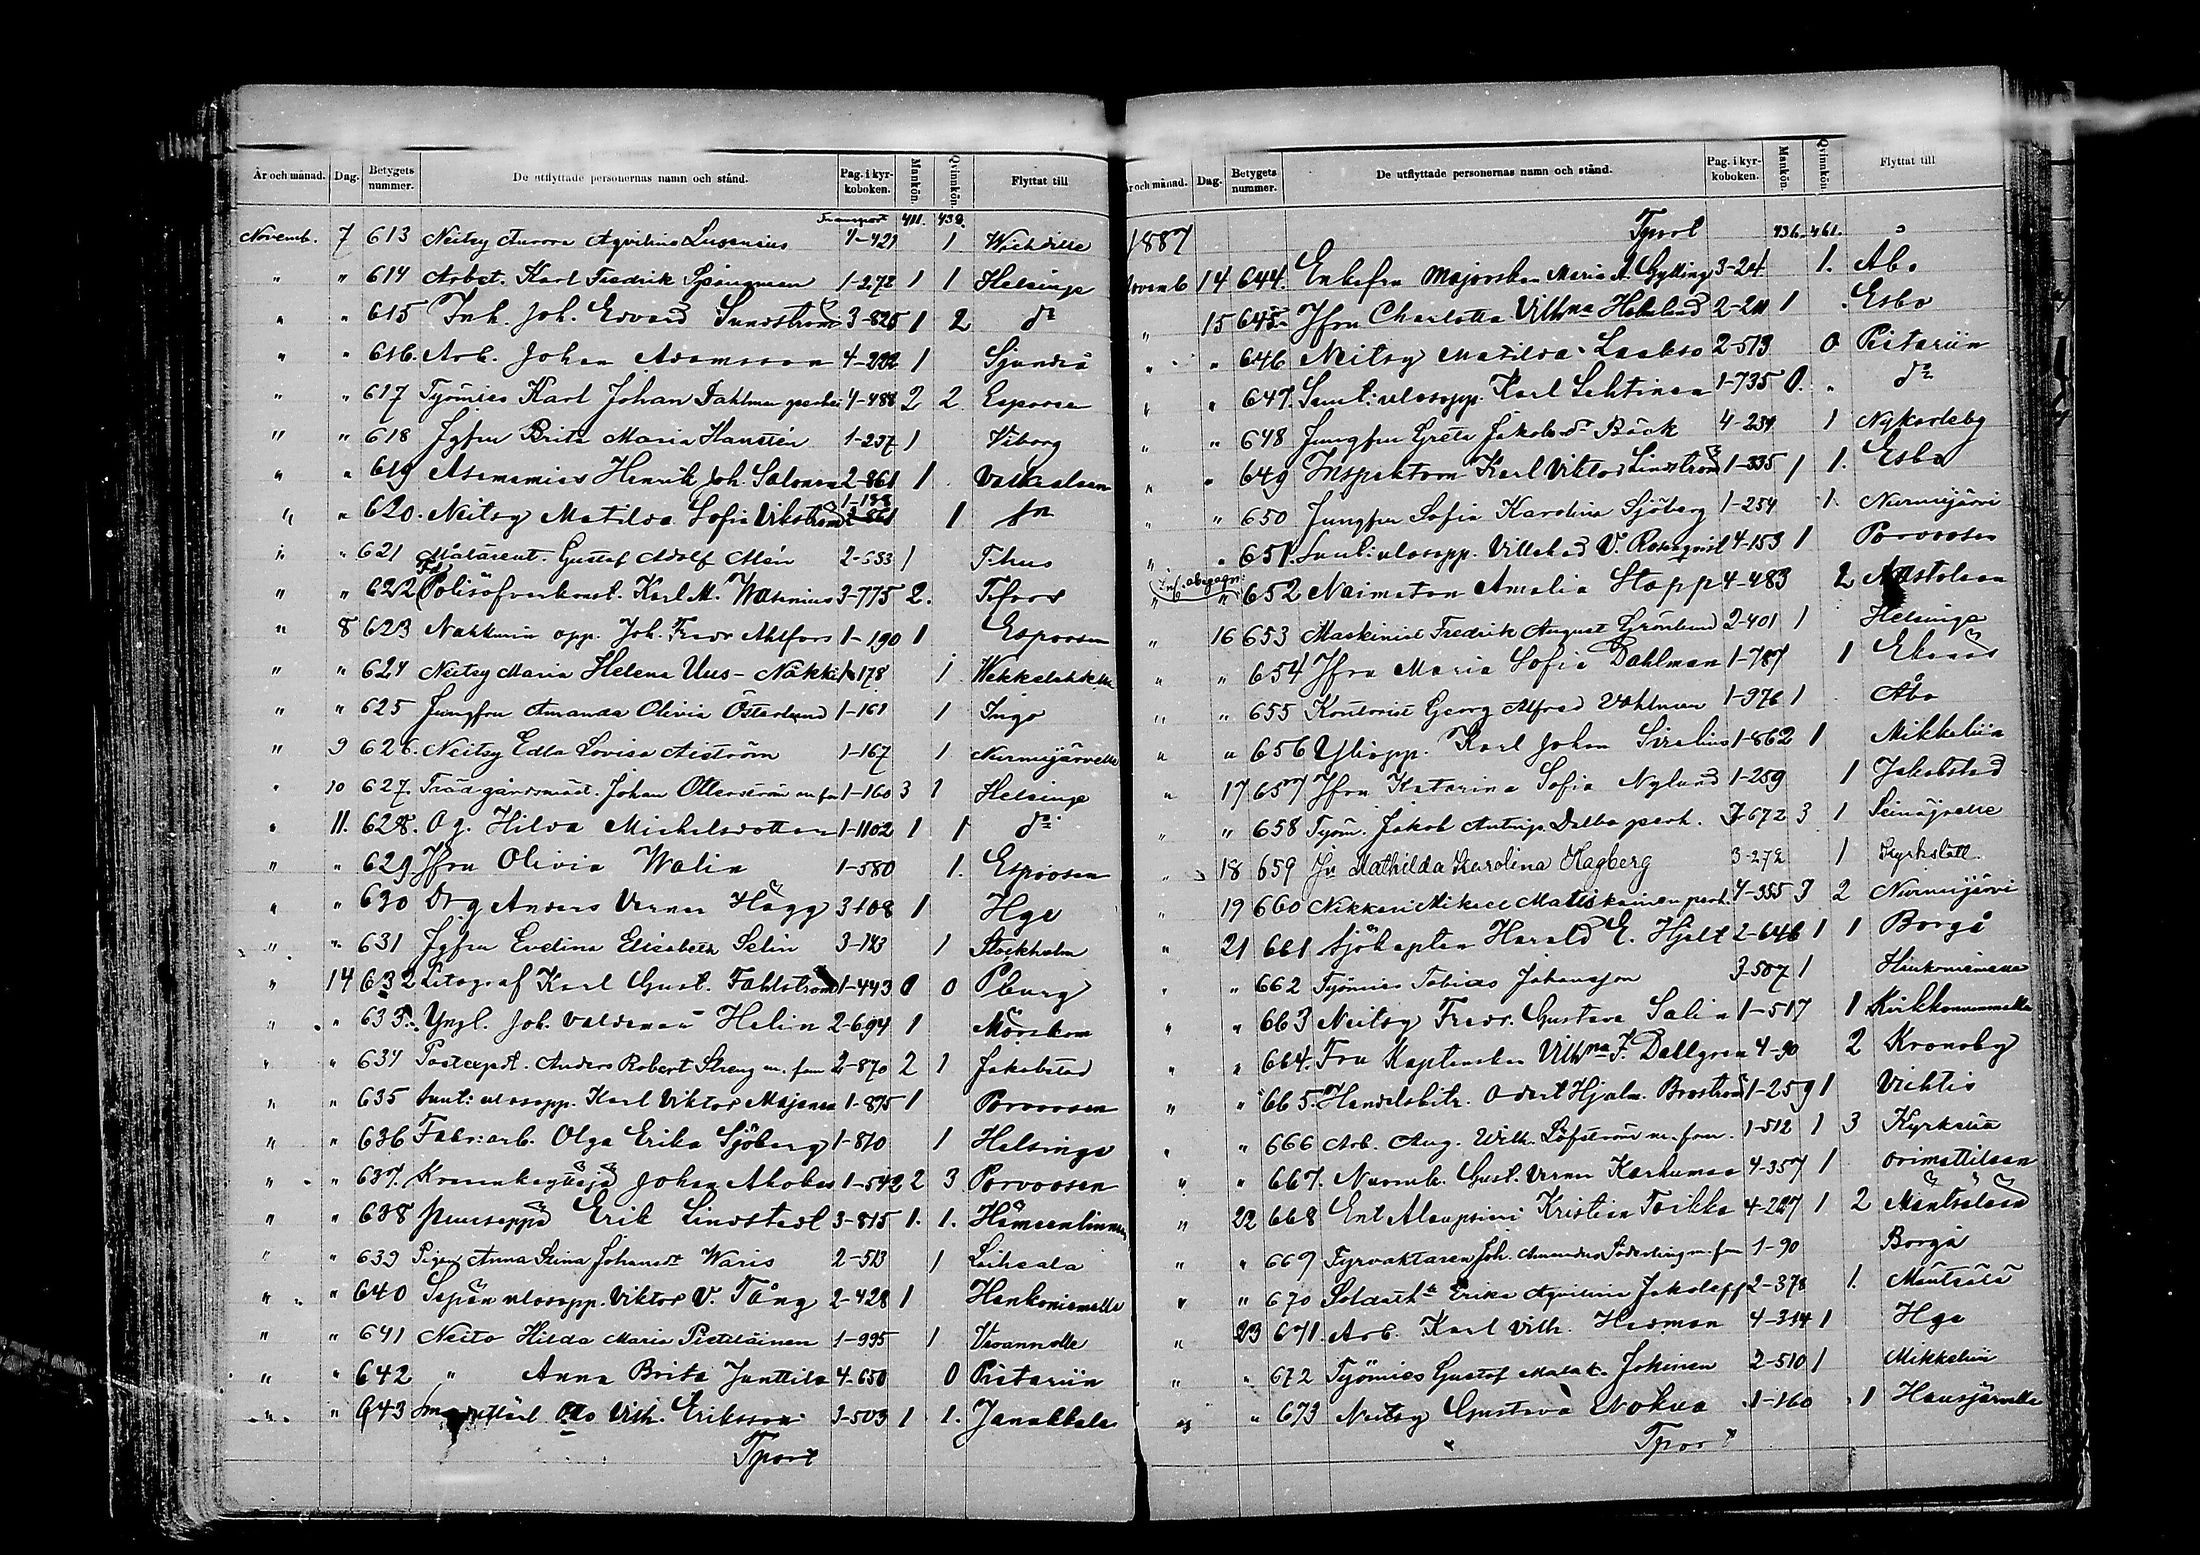 År och månad. Dag. Betygets nummer. De utflyttade personernas namn och stånd. Pag. i kyrkoboken. Mankön. Qvinnkön. Flyttat till
Transport 411. 432.
Novemb. 7 613 Neitsy Aurora Aqvilina Lusenius 4-421 1 Wichdille
" " 614 Arbet. Karl Fredrik Spångman 1-272 1 1 Helsinge
" " 615 Inh. Joh. Edvard Sundström 3-825 1 2 do
" " 616. Arb. Johan Adamsson 4-222 1 Sjundeå
" " 617 Työmies Karl Johan Dahlman perhe 4-488 2 2 Espoosen
" " 618 Jgfru Brita Maria Hanstén 1-237 1 Viborg
" " 619 Asemamies Henrik Joh. Salonen 2-861 1 Valkealaan
" " 620. Neitsy Matilda Sofia Vikström 1-188 1
" " 621 Målareut. Gustaf Adolf Mén 2-533 1 T:hus
" " 622 Fd Polisöfverkonst. Karl M. Wasenius 3-775 2. T:fors
" 8 623 Nahkurin opp. Joh. Fredr Ahlfors 1-190 1 Espoosen
" " 624 Neitsy Maria Helena Uus-Näkki 1-178 1
" " 625 Jungfru Amanda Olivia Österlund 1-161 1 Ingo
" 9 626. Neitsy Edla Lovisa Aiström 1-167 1 Nurmijärvelle
" 10 627. Trädgårdsmäst. Johan Otterström m. fam 1-160 3 1 Helsinge
" 11. 628. O g. Hilda Michelsdotter 1-1102 1 1 do
" " 629 Jfru Olivia Walin 1-580 1. Espoosen
" " 630 Drg Anders Verner Hägg 3-108 1 Hge
" " 631 Jgfru Evelina Elisabeth Selin 3-143 1 Stockholm
" 14 632 Litograf Karl Gust. Fahlström 1-443 0 0 Pburg
" " 633. Yngl. Joh. Valdemar Helin 2-694 1 Mörskom
" " 634 Postexpdt. Anders Robert Streng m. fam 2-870 2 1 Jakobstad
" " 635 Suut: ul osopp. Karl Viktor Majanen 1-875 1 Porvoosen
" " 636 Fabr:arb. Olga Erika Sjöberg 1-810 1 Helsinge
" " 637. Johan Ahobas 1-542 2 3 Porvoosen
" " 638 Puuseppä Erik Lindstedt 3-815 1. 1. Hämeenlinnan
" " 639 Pigan Anna Stina Johansdr Waris 2-513 1
" " 640 Sepän ulosopp. Viktor V. Tång 2-428 1 Hankoniemelle
" " 641 Neito Hilda Maria Pietiläinen 1-995 1
" " 642 " Anna Brita Junttila 4-650 0 Pietariin
" " 643 Otto Vilh. Eriksson 3-503 1 1. Janakkala
Tport
År och månad. Dag. Betygets nummer. De utflyttade personernas namn och stånd. Pag. i kyrkoboken. Mankön. Qvinnkön. Flyttat till
1887 Tport 436. 461.
Novemb 14 644. Enkefru Majorskan Maria A. Gylling 3-24 1. Åbo
" 15 645. Jfru Charlotta Vilhna 2-211 1 Esbo
" " 646 Neitsy Matilda Laakso 2-513 0 Pietariin
" " 647. Suut: ulosopp. Karl Lehtinen 1-735 0. do
" " 648 Jungfru Greta Jakobsdr Bäck 4-234 1 Nykarleby
" " 649 Inspektorn Karl Viktor Lindström 1-335 1 1. Esbo
" " 650 Jungfru Sofia Karolina Sjöberg 1-254 1. Nurmijärvi
" " 651. Suut: ulosopp. Villehad V. Rosenqvist 4-153 1 Porvoosen
" " 652 Naimaton Amalia Stapp 4-483 2 Nastolaan
" 16 653 Maskinist Fredrik August Grönlund 2-401 1 Helsinge
" " 654 Jfru Maria Sofia Dahlman 1-787 1 Ekenäs
" " 655 Kontorist Georg Alfred Vahlman 1-976 1 Åbo
" " 656 Yliopp. Karl Johan Sirelius 1-862 1 Mikkeliin
" 17 657 Jfru Katarina Sofia Nylund 1-259 1 Jakobstad
" " 658 Työm. Jakob Antinp. Dalbo perh. 3-672 3 1 Seinäjoelle
" 18 659 Jfr Mathilda Karolina Hagberg 3-272 1 Kyrkslätt.
" 19 660 Nikkari Mikael Matiskainen perh. 4-355 3 2 Nurmijärvi
" 21 661 Sjökapten Harald E. Hjelt 2-646 1 1 Borgå
" " 662 Työmies Tobias Johansson 3-507 1 Hankoniemelle
" " 663 Neitsy Fredr. Gustava Salin 1-517 1 Kirkkonummella
" " 664. Fru Kaptenskan Vilhna F. Dallgren 4-90 2 Kronoby
" " 665. Handelsbitr. Hjalm. Broström 1-259 1 Vichtis
" " 666 Arb. Aug. Wilh. Löfström m. fam. 1-512 1 3
" " 667. Gust. Verner Karhumaa 4-357 1 Orimattilaan
" 22 668 Ent Aliupsieri Kristian Toikka 4-227 1 2 Mäntsälään
" " 669 Fyrvaktaren Joh. Amandus Söderling m. fam 1-90 Borgå
" " 670 Erika Aqvilina 2-378 1. Mäntsälä
" 23 671. Arb. Karl Vilh. Herman 4-314 1 Hge
" " 672 Työmies Gustaf Johinen 2-510 1 Mikkeliin
" " 673 Neitsy Gustava Nokua 1-160 1 Hausjärvelle
Tport